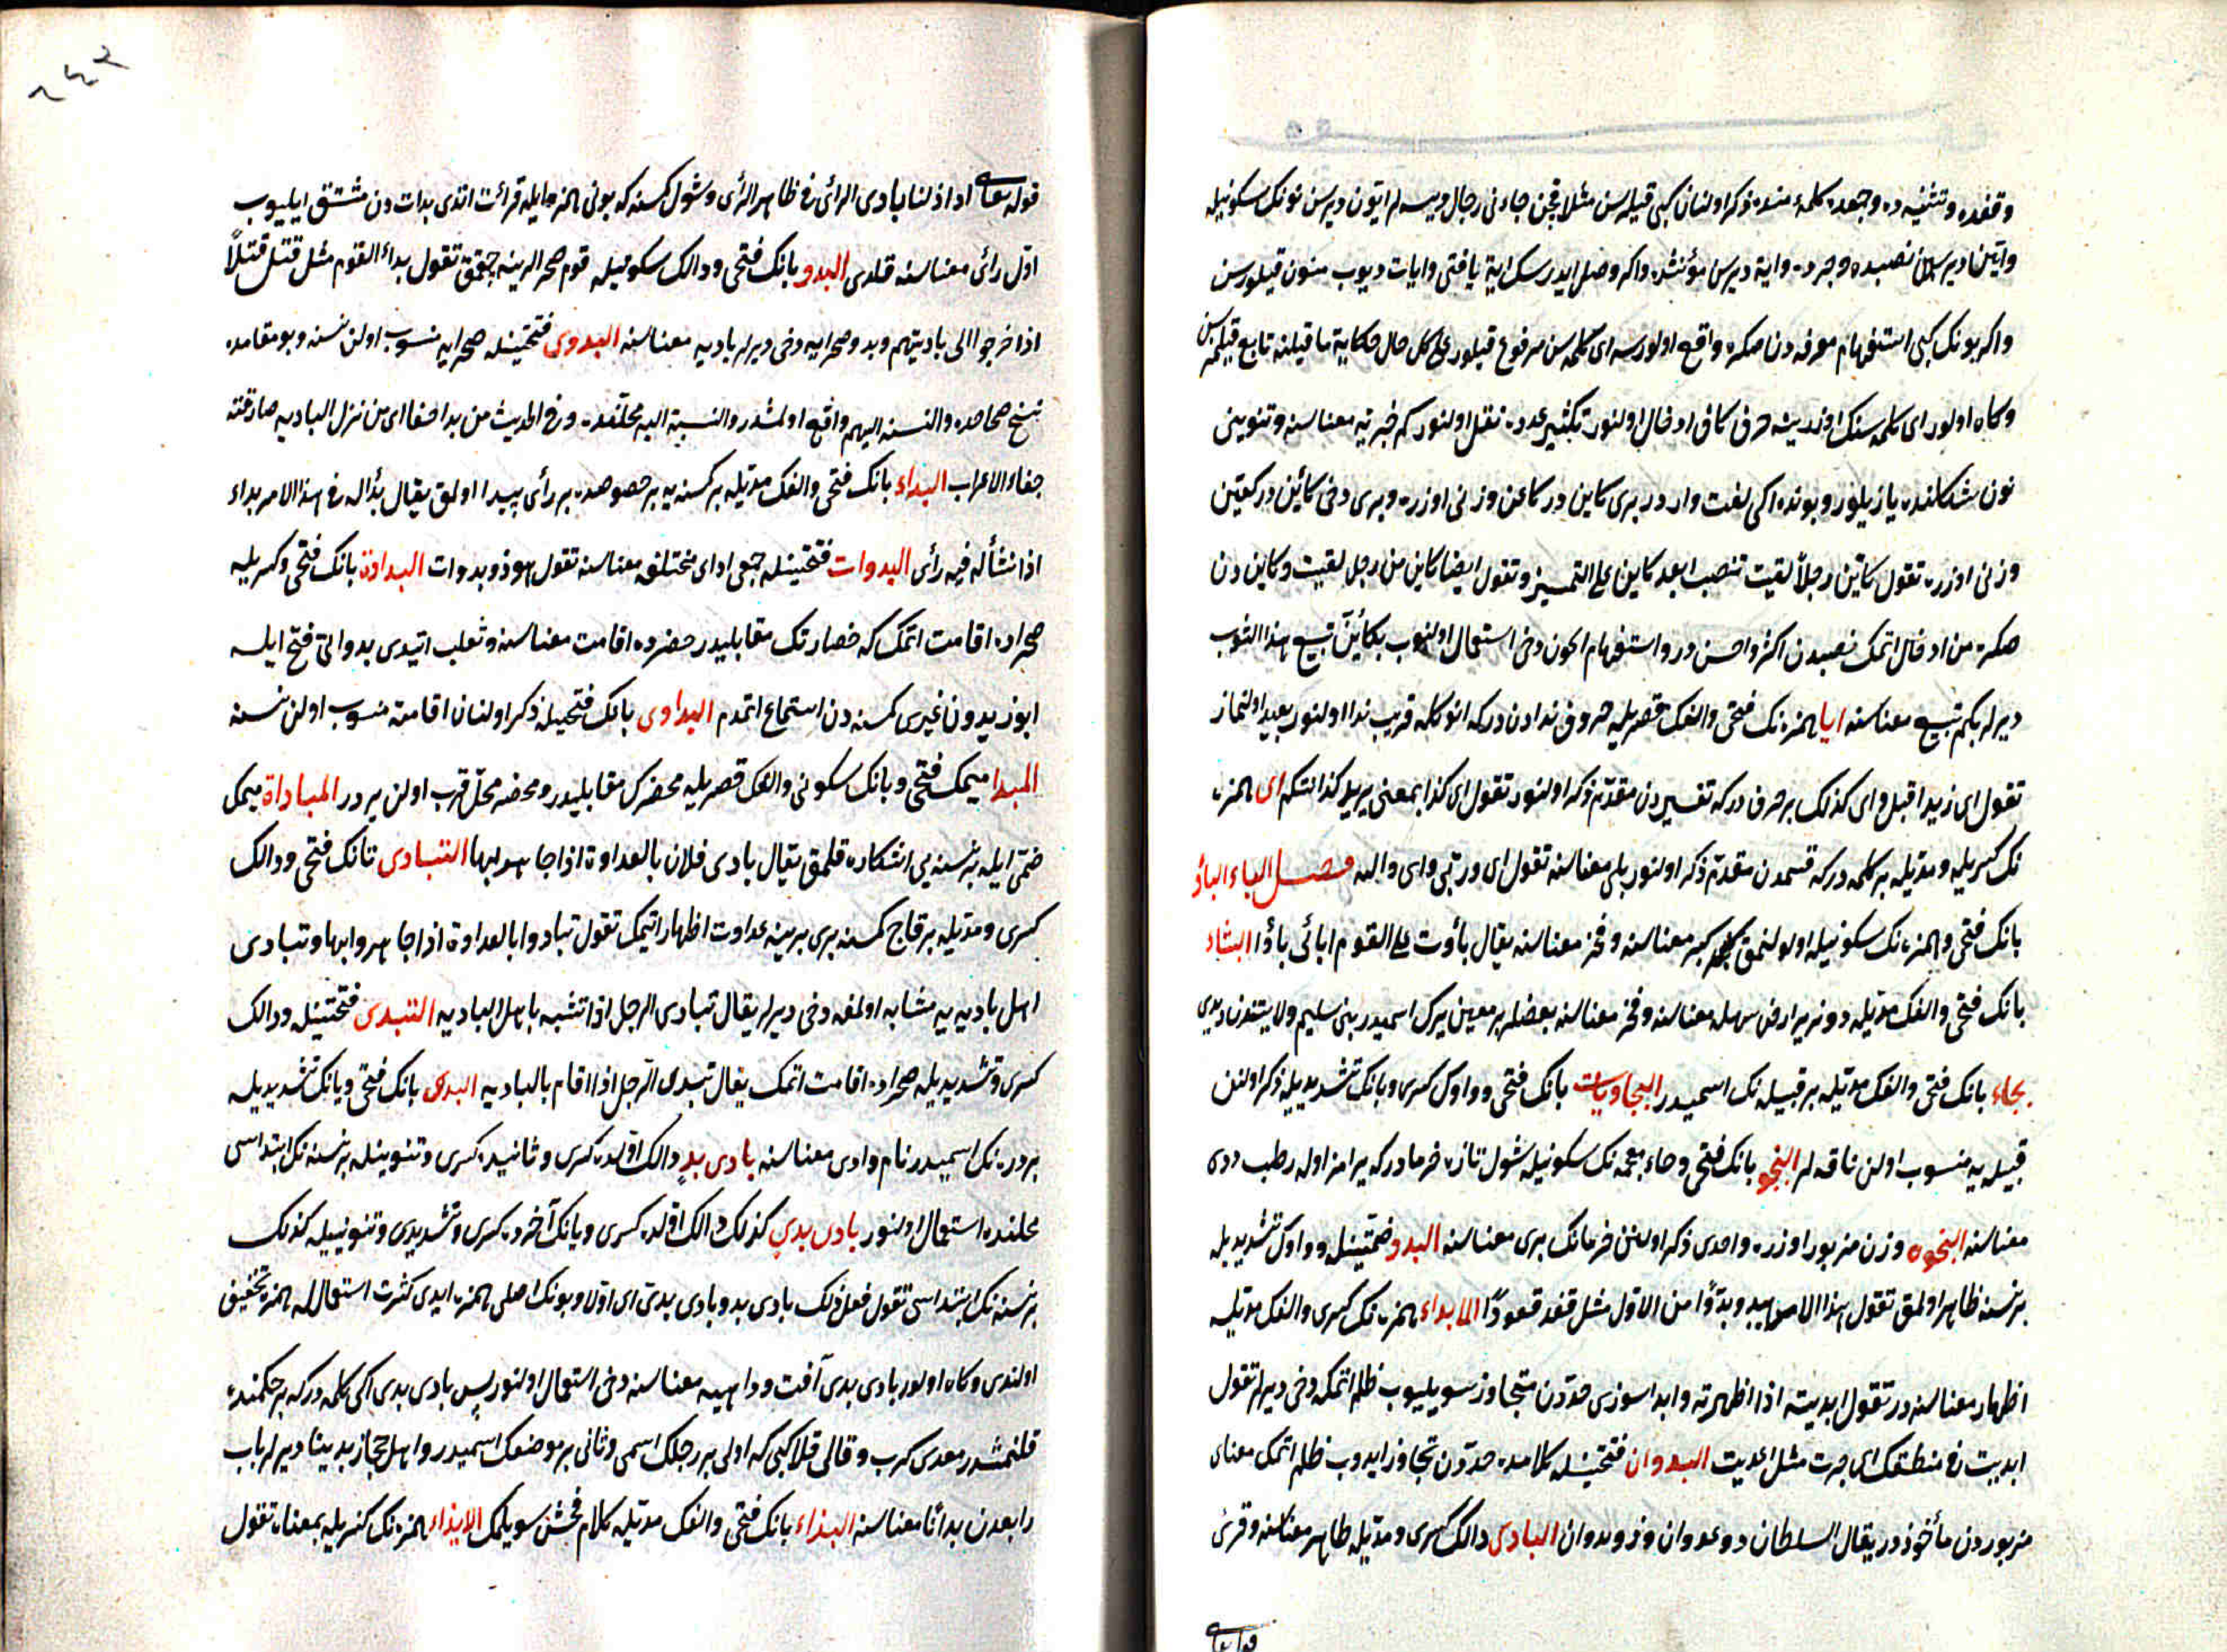 وقفده وتثنیه ده وجمعده کلمهٔ منده ذکر اولنان کبی قیلرسن مثلا قچن جاءنی رجال دیسه لر ایون دیرسن نونک سکونیله
وایین دیرسن نصبده وجرده وایة دیرسن مؤنثده واکر وصل ایدرسک ایة یا فتی وایات دیوب منون قیلورسن
واکر بونک کبی استفهام معرفه دن صکره واقع اولورسه ای کلمه سن مرفوع قیلور علی کل حال حکایة ماقبلنه تابع قیلمزسن
وکاه اولور ای کلمه سنک اوزرینه حرف کاف ادخال اولنور تکثیر عدده نقل اولنور کم خبریه معناسنه وتنوینی
نون شکلنده یازیلور وبونده ایکی لغت وارد در بری کاین در کاعن وزنی اوزره وبری دخی کأین در کعین
وزنی اوزره تقول کأین رجلاً لقیت تنصب ما بعد کاین علی التمییز وتقول ایضا کاین من رجل لقیت وکاین دن
صکره من ادخال اتمک نصبدن اکثر واحسن در واستفهام ایچون دخی استعمال اولنوب بکأین تبیع هذا الثوب
دیرلر بکم تبیع معناسنه ایا همزه نک فتحی والفک قصریله حروف ندادن در که انوکله قریب ندا اولنور بعید اولنماز
تقول ای زید اقبل وای کذلک بر حرف در که تفسیردن مقدم ذکر اولنور تقول ای کذا بمعنی یرید کذا انتکم ای همزه
نک کسریله ومدیله بر کلمه در که قسمدن مقدم ذکر اولنور بلی معناسنه تقول ای وربی وای والله فصل الباء البأو
بانک فتحی وهمزه نک سکونیله اولولنمق کبر معناسنه وفخر معناسنه یقال بأوت علی القوم ابأی بأوا البثاء
بانک فتحی والفک مدیله دوز یر ارض سهله معناسنه وفخر معناسنه بعضلر بر معین یرک اسمیدر بنی سلیم ولایتنده دیدی
بجاء بانک فتحی والفک مدیله بر قبیله نک اسمیدر البجاویات بانک فتحی وواوک کسری ویانک تشدیدیله ذکر اولنن
قبیله یه منسوب اولن ناقه لر البخو بانک فتحی وخاء معجمه نک سکونیله شول تازه خرمادر که یرامز اوله رطب ردی
معناسنه البخوه وزن مزبور اوزره واحدی ذکر اولنن خرمانک بری معناسنه البدو ضمتینله وواوک تشدیدیله
بر نسنه ظاهر اولمق تقول بدا الامر یبدو بدوًا من الاول مثل قعد قعودًا الابداء همزه نک کسری والفک مدیله
اظهار معناسنه در تقول ابدیته اذا اظهرته وابدا سوزی حددن متجاوز سویلیوب ظلم اتمک دخی دیرلر تقول
ابدیت فی منطقک ای جرت مثل اعدیت البدوان فتحتینله کلامده حددن تجاوز ایدوب ظلم اتمک معنای
مزبوردن مأخوذدر یقال السلطان ذو عدوان وذو بدوان البادی دالک کسری ومدیله ظاهر معناسنه وقرئ
قوله تعالی
قوله تعالی اراذلنا بادی الرأی فی ظاهر الرأی وشول کسنه که بونی همزه ایله قرائت اتدی بدات دن مشتق ایلیوب
اول رأی معناسنه قلدی البدو بانک فتحی ودالک سکونیله قوم صحرالرینه چقمق تقول بداء القوم مثل قتل قتلًا
اذا خرجوا الی بادیتهم وبدو صحرایه دخی دیرلر بادیه معناسنه البدوی فتحتینله صحرایه منسوب اولن نسنه وبو مقامده
نسخ صحاحده والنسبة الیهم واقع اولمشدر والنسبة الیه محلنده وفی الحدیث من بدا جفا ای من نزل البادیه صار فیه
جفاء الاعراب البداء بانک فتحی والفک مدیله بر کسنه یه بر خصوصده بر رأی پیدا اولمق یقال بدا له فی هذا الامر بداء
اذا نشأ له فیه رأی البدوات فتحتینله جمعی ارای مختلفه معناسنه تقول هو ذو بدوات البداوة بانک فتحی وکسریله
صحراده اقامت اتمک که حضارتک مقابلیدر حضرده اقامت معناسنه وثعلب ایتدی بداوتی فتح ایله
ابو زیددن غیری کمسنه دن استماع اتمدم البداوی بانک فتحیله ذکر اولنان اقامته منسوب اولن نسنه
المبدا میمک فتحی وبانک سکونی والفک قصریله محضرک مقابلیدر ومحضر محل قرب اولن یردر المباداة میمک
ضمی ایله بر نسنه یی اشکاره قلمق یقال بادی فلان بالعداوة اذا جاهر بها التبادی تانک فتحی ودالک
کسری ومدیله بر قاچ کمسنه بری برینه عداوت اظهار اتمک تقول تبادوا بالعداوة اذا جاهروا بها وتبادی
اهل بادیه یه مشابه اولمغه دخی دیرلر یقال تبادی الرجل اذا تشبه باهل البادیه التبدی فتحتینله ودالک
کسری وتشدیدیله صحراده اقامت اتمک یقال تبدی الرجل اذا اقام بالبادیه البدی بانک فتحی ویانک تشدیدیله
بر دره نک اسمیدر نام وادی معناسنه بادی بدٍ دالک اولده کسری وثانیده کسری وتنوینله بر نسنه نک ابتداسی
محلنده استعمال اولنور بادی بدی کذلک دالک اولده کسری ویانک آخرده کسری وتشدیدی وتنوینیله کذلک
بر نسنه نک ابتداسی تقول افعل ذلک بادی بد وبادی بدی ای اولا وبونک اصلی همزه ایدی کثرت استعمال له همزه تخفیف
اولندی وکاه اولور بادی بدی آفت وداهیه معناسنه دخی استعمال اولنور پس بادی بدی ایکی کلمه در که بر حکمنده
قلنمشدر معدی کرب وقالی قلا کبی که اولی بر رجلک اسمی وثانی بر موضعک اسمیدر واهل حجاز بدینا دیرلر باب
رابعدن بدأنا معناسنه البذاء بانک فتحی والفک مدیله کلام فحش سویلمک الابذاء همزه نک کسریله بمعناه تقول